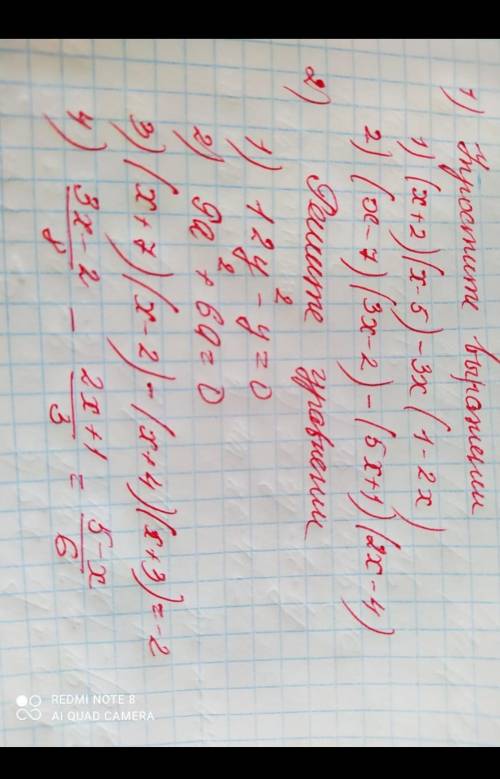 1) Упростите выражении
1) (x+2)(x-5)-3x(1-2x)
2) (x-7)(3x-2)-(5x+1)(2x-4)
2) Решите уравнении
1) 12y²-y=0
2) 9a²+6a=0
3) (x+7)(x-2)-(x+4)(x+3)=-2
4) (3x-2)/y - (2x+1)/3 = (5-x)/6
REDMI NOTE 8
AI QUAD CAMERA